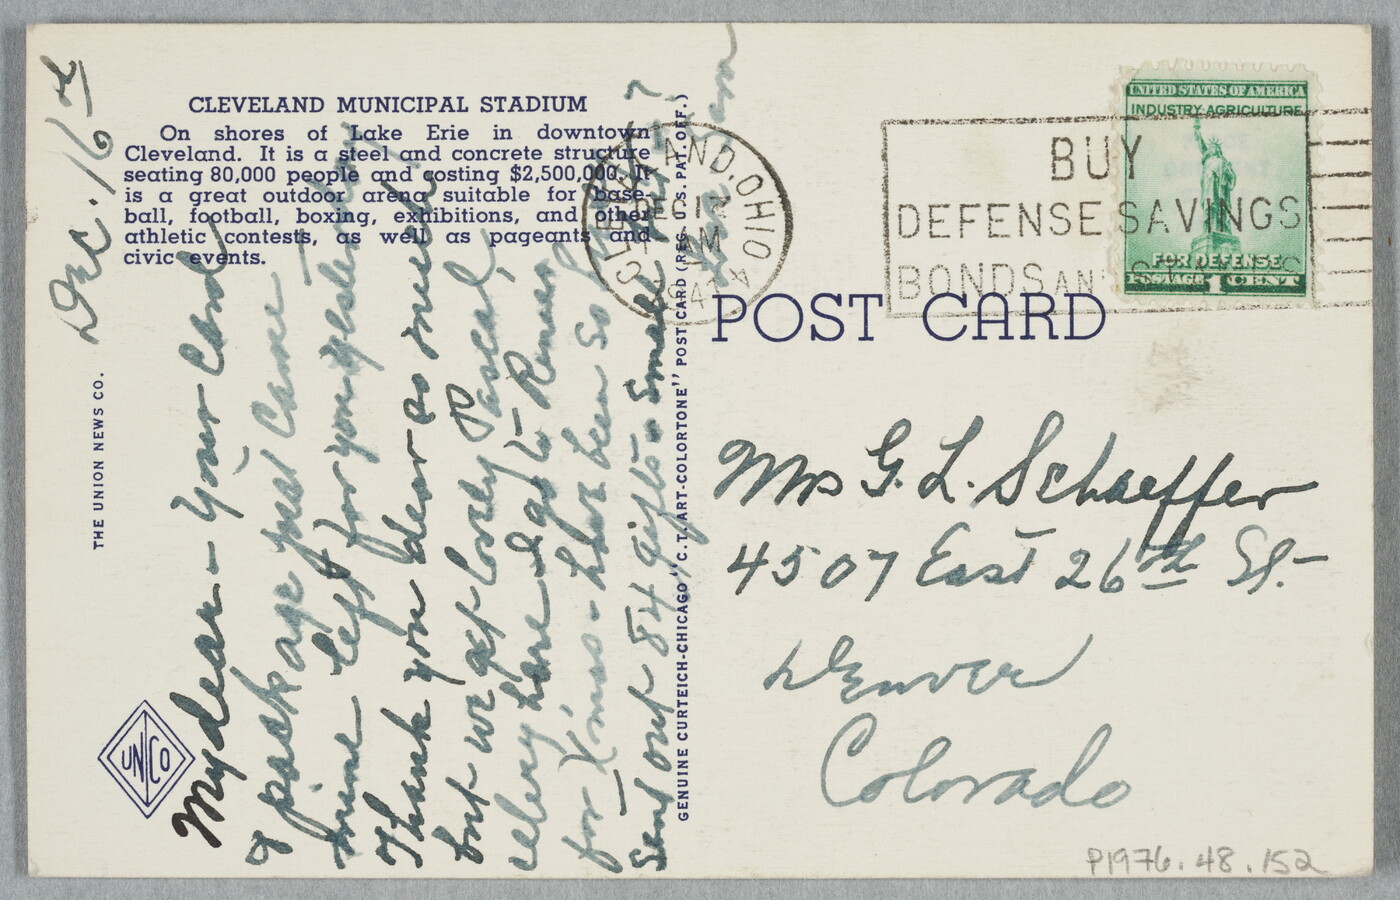 CLEVELAND MUNICIPAL STADIUM
On shores of Lake Erie in downtown
Cleveland. It is a steel and concrete structure
seating 80,000 people and costing $2,500,000. It
is a great outdoor arena suitable for base-
ball, football, boxing, exhibitions, and other
athletic contests, as well as pageants and
civic events.
THE UNION NEWS CO.
UN CO
Dec. 16
My dear - Your Card
& package just Came
mine left for you yesterday
Thank you dear so much
but we get lovely Pascal
celery here
for X'mas - have been so
Send out 84 gifts - small
GENUINE CURTEICH-CHICAGO "C.T. ART-COLORTONE" POST CARD (REG. U.S. PAT. OFF.)
CLEVELAND, OHIO
DEC 17
AM
1941
BUY
DEFENSE SAVINGS
BONDS AN
UNITED STATES OF AMERICA
INDUSTRY·AGRICULTURE
FOR DEFENSE
POSTAGE 1 CENT
POST CARD
Mrs G. L. Schaeffer
4507 East 26th St.-
Denver
Colorado
P1976.48.152